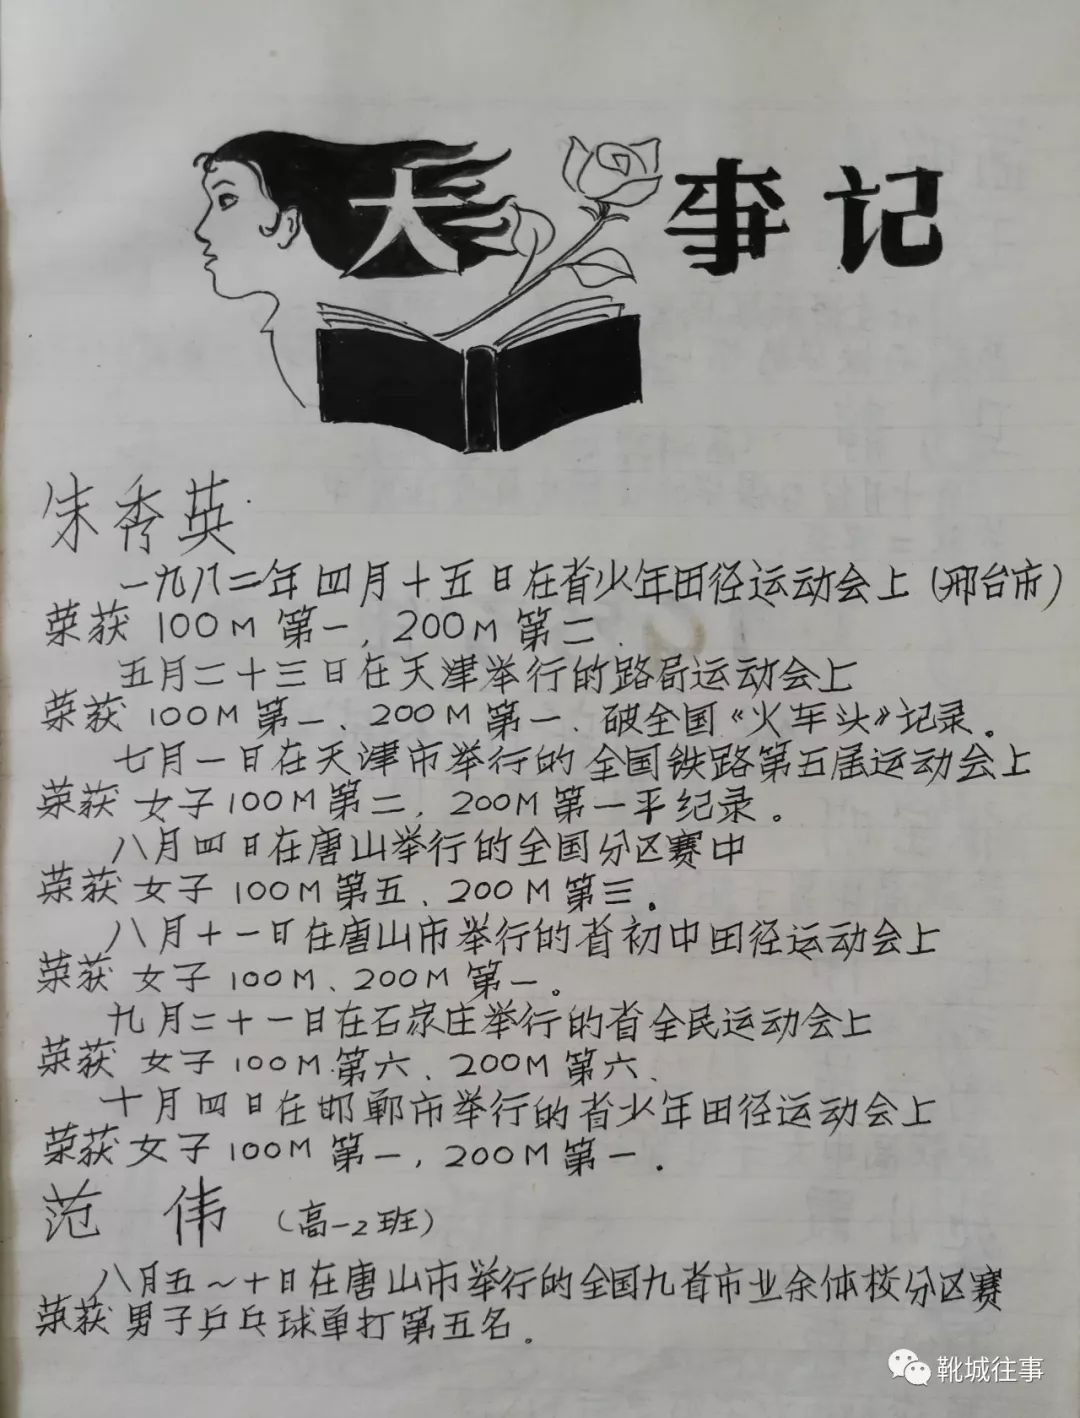 大事记
朱秀英
一九八二年四月十五日在省少年田径运动会上(邢台市)
荣获 100M 第一, 200M 第二.
五月二十三日在天津举行的路局运动会上
荣获 100M 第一、200M 第一、破全国《火车头》记录。
七月一日在天津市举行的全国铁路第五届运动会上
荣获 女子 100M 第二, 200M 第一平纪录。
八月四日在唐山举行的全国分区赛中
荣获 女子 100M 第五、200M 第三。
八月十一日在唐山市举行的省初中田径运动会上
荣获 女子 100M、200M 第一。
九月二十一日在石家庄举行的省全民运动会上
荣获 女子 100M 第六、200M 第六、
十月四日在邯郸市举行的省少年田径运动会上
荣获女子 100M 第一, 200M 第一.
范 伟 (高一2班)
八月五~十日在唐山市举行的全国九省市业余体校分区赛
荣获 男子乒乓球单打第五名.
靴城往事